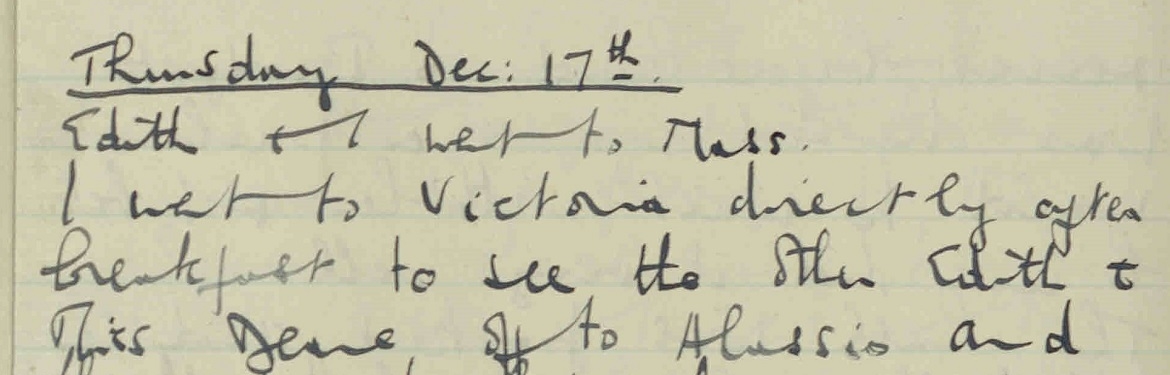 Thursday Dec: 17th.
Edith & I went to Mass.
I went to Victoria directly after
breakfast to see the other Edith &
Miss Deane off to Alassio and